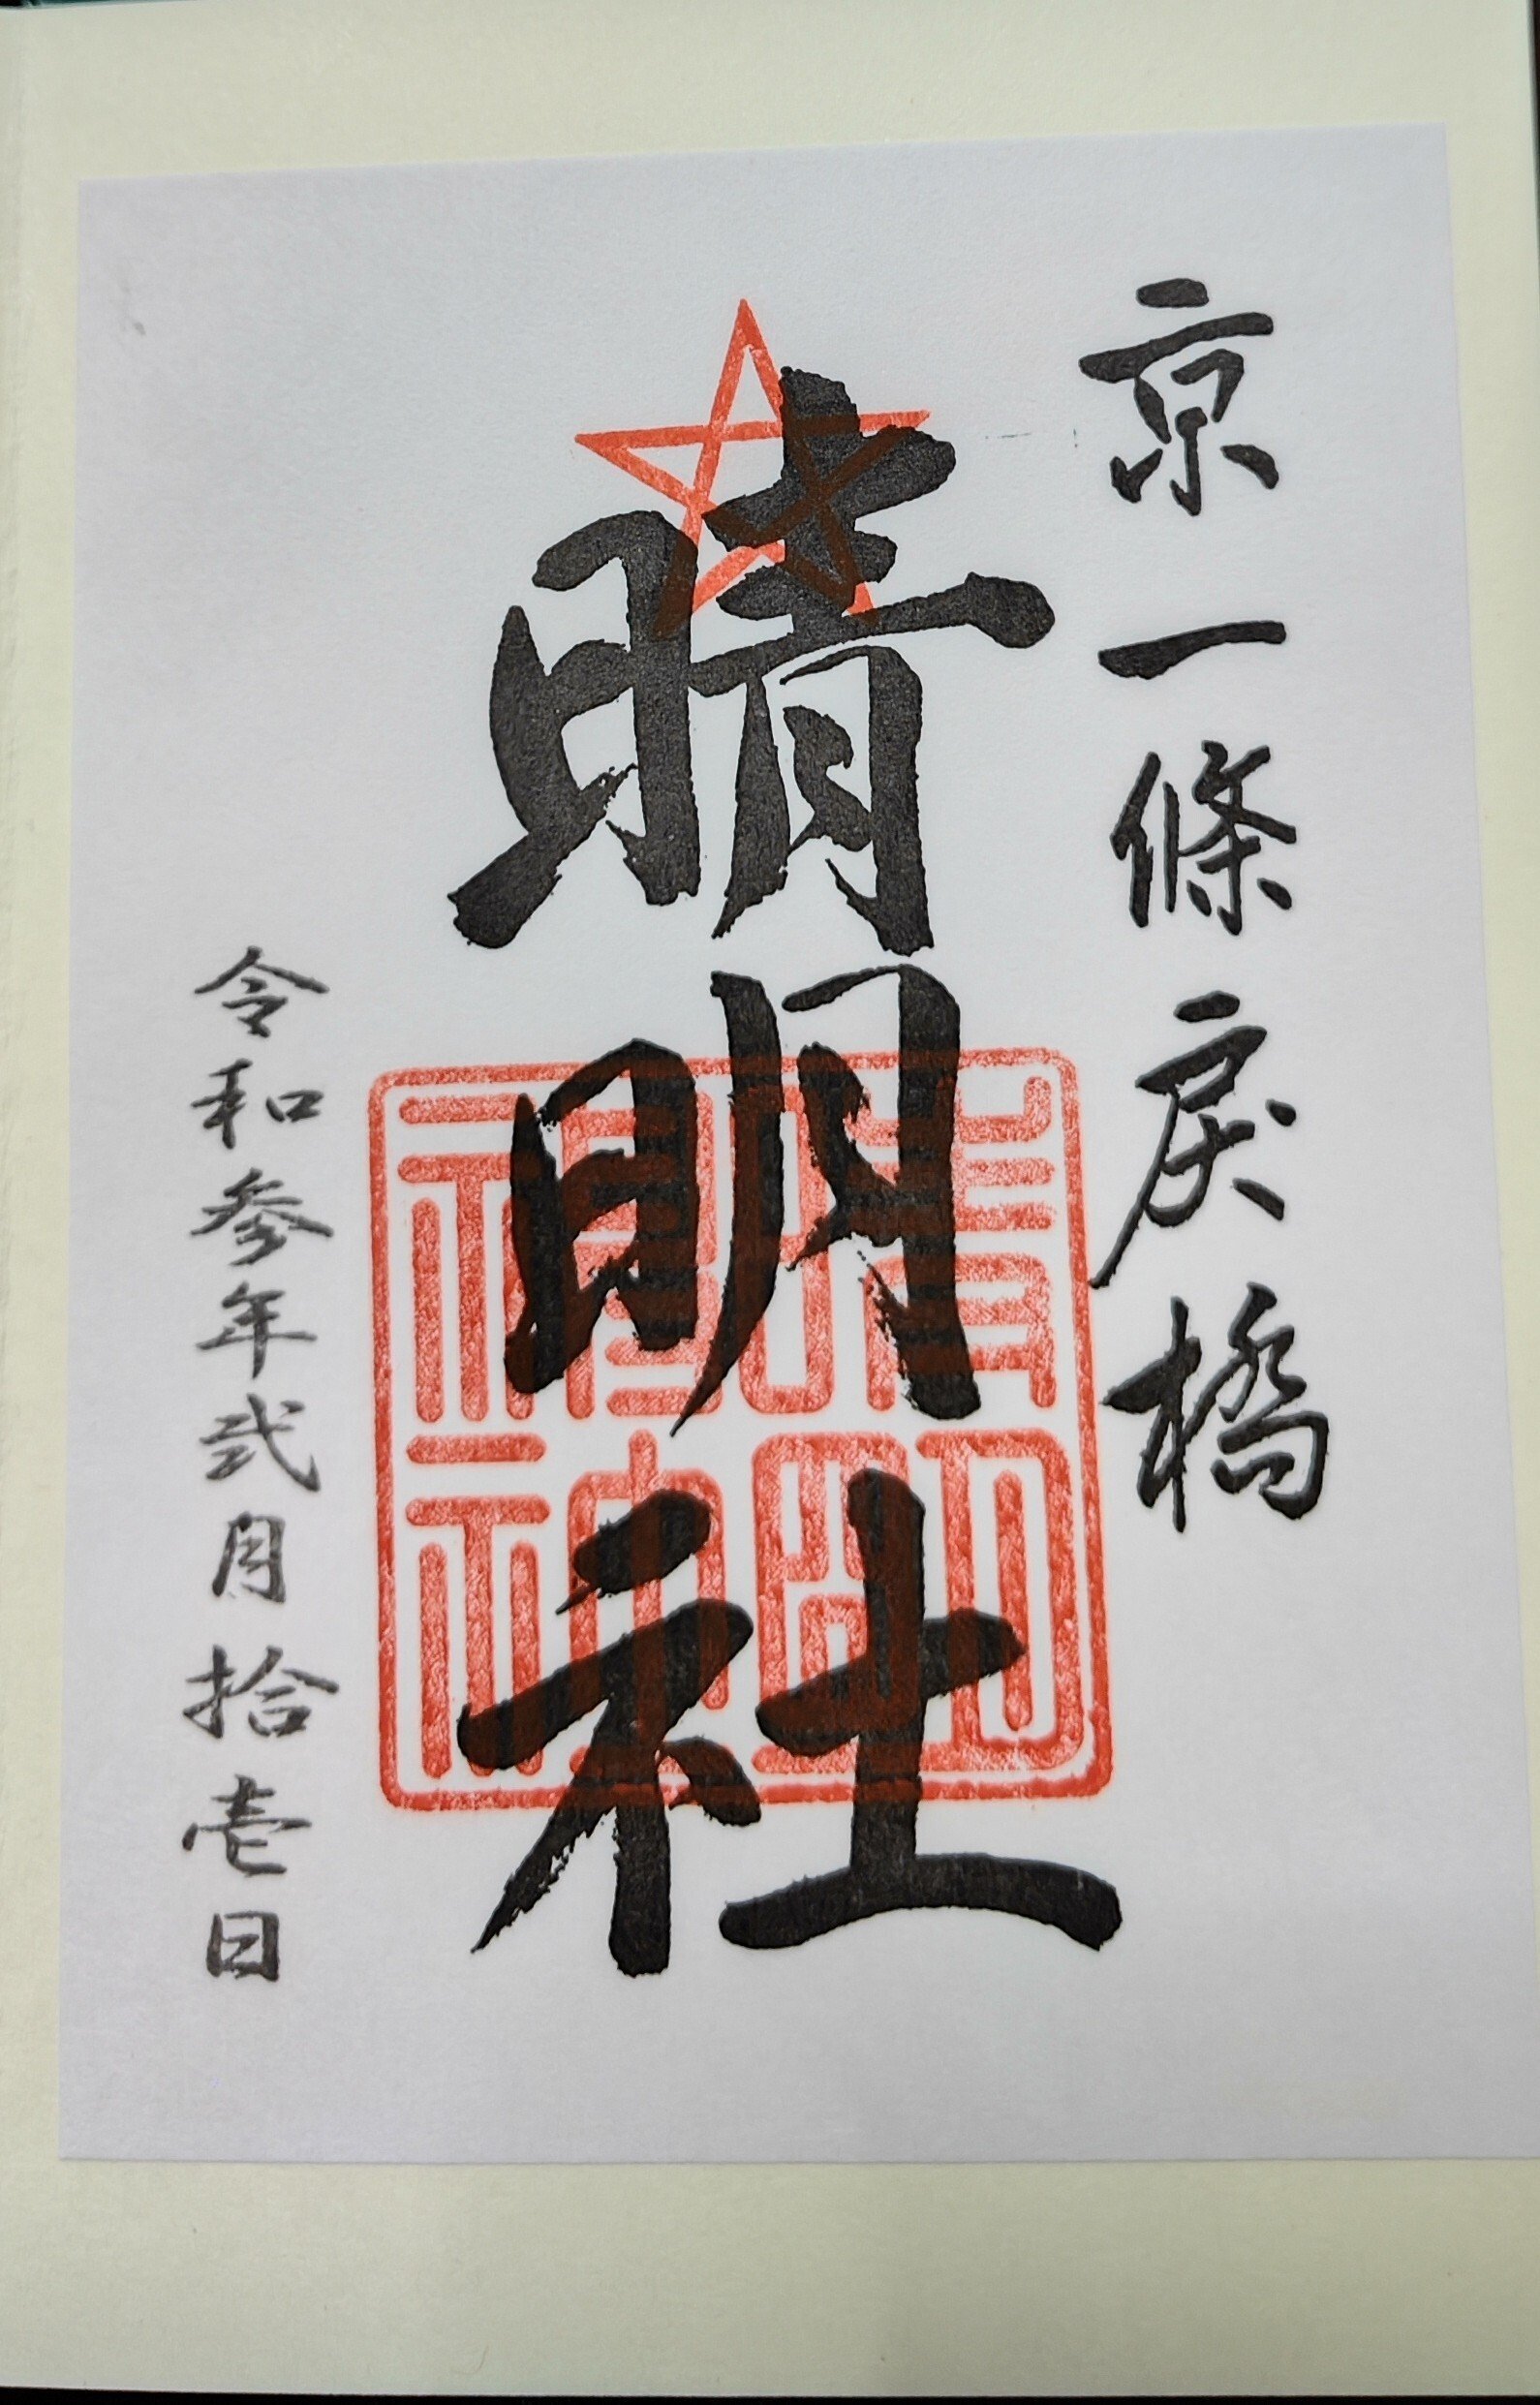 京一條戻橋
晴明社
晴明神社
令和参年弐月拾壱日